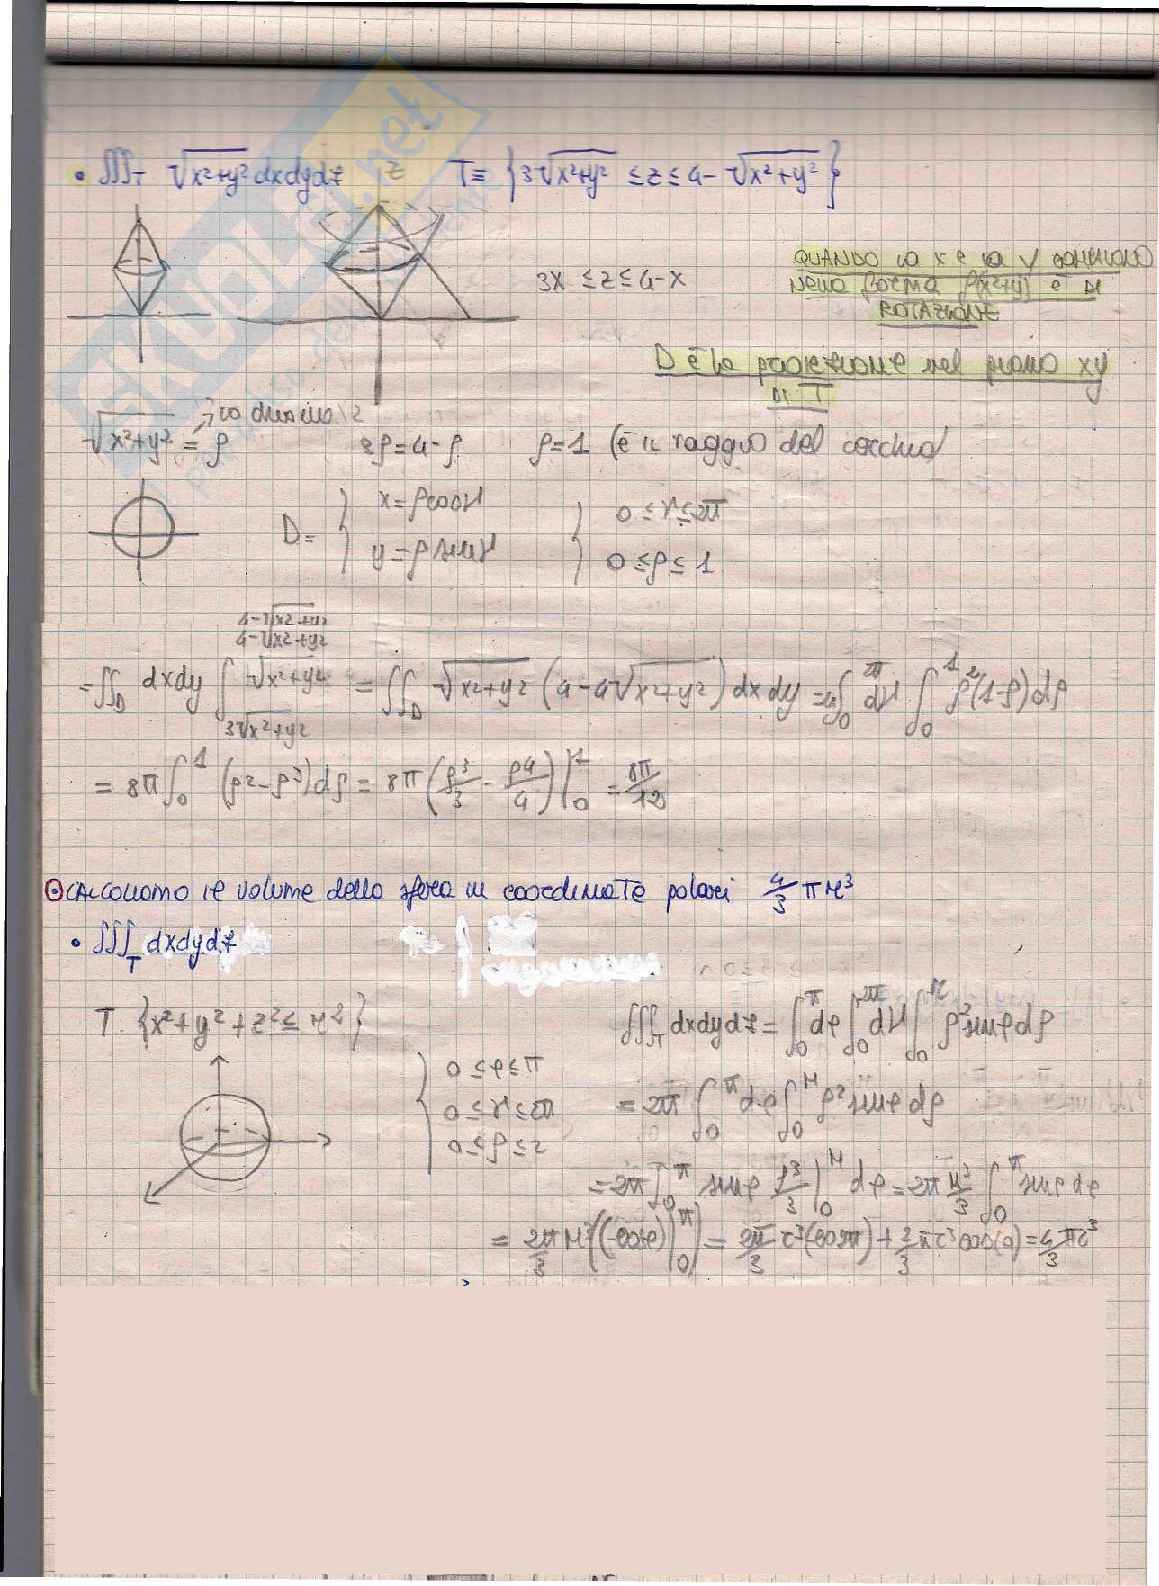 • ∭_T √(x²+y²) dxdydz   z   T≡ {3√(x²+y²) ≤ z ≤ 4-√(x²+y²)}
3x ≤ z ≤ 4-x
QUANDO la x e la y
nella forma f(x²+y²) è DI
ROTAZIONE
D è la proiezione nel piano xy
DI T
√(x²+y²) = ρ
3ρ=4-ρ   ρ=1 (è il raggio del cerchio)
D= { x=ρcosϑ   { 0≤ϑ≤2π
y=ρsenϑ   0≤ρ≤1
4-√(x²+y²)
4-√(x²+y²)
=∬_D dxdy ∫ √(x²+y²) = ∬_D √(x²+y²) (4-4√(x²+y²)) dxdy =4∫_0^2π dϑ ∫_0^1 ρ²(1-ρ)dρ
3√(x²+y²)
= 8π∫_0^1 (ρ²-ρ³)dρ = 8π(ρ³/3 - ρ4/4)|_0^1 = 8π/12
CALCOLIAMO il volume della sfera in coordinate polari 4/3 πr³
• ∭_T dxdydz
T {x²+y²+z²≤ r²}   ∭_T dxdydz = ∫_0^π dφ ∫_0^2π dϑ ∫_0^r ρ²senφdρ
{ 0≤φ≤π
0≤ϑ≤2π   = 2π ∫_0^π dφ ∫_0^r ρ²senφ dρ
0≤ρ≤r
=2π∫_0^π senφ ρ³/3|_0^r dφ = 2π r³/3 ∫_0^π senφ dφ
= 2π/3 r³((-cosφ)|_0^π) = 2π/3 r³(cosπ) + 2/3 πr³cos(0) = 4/3 πr³